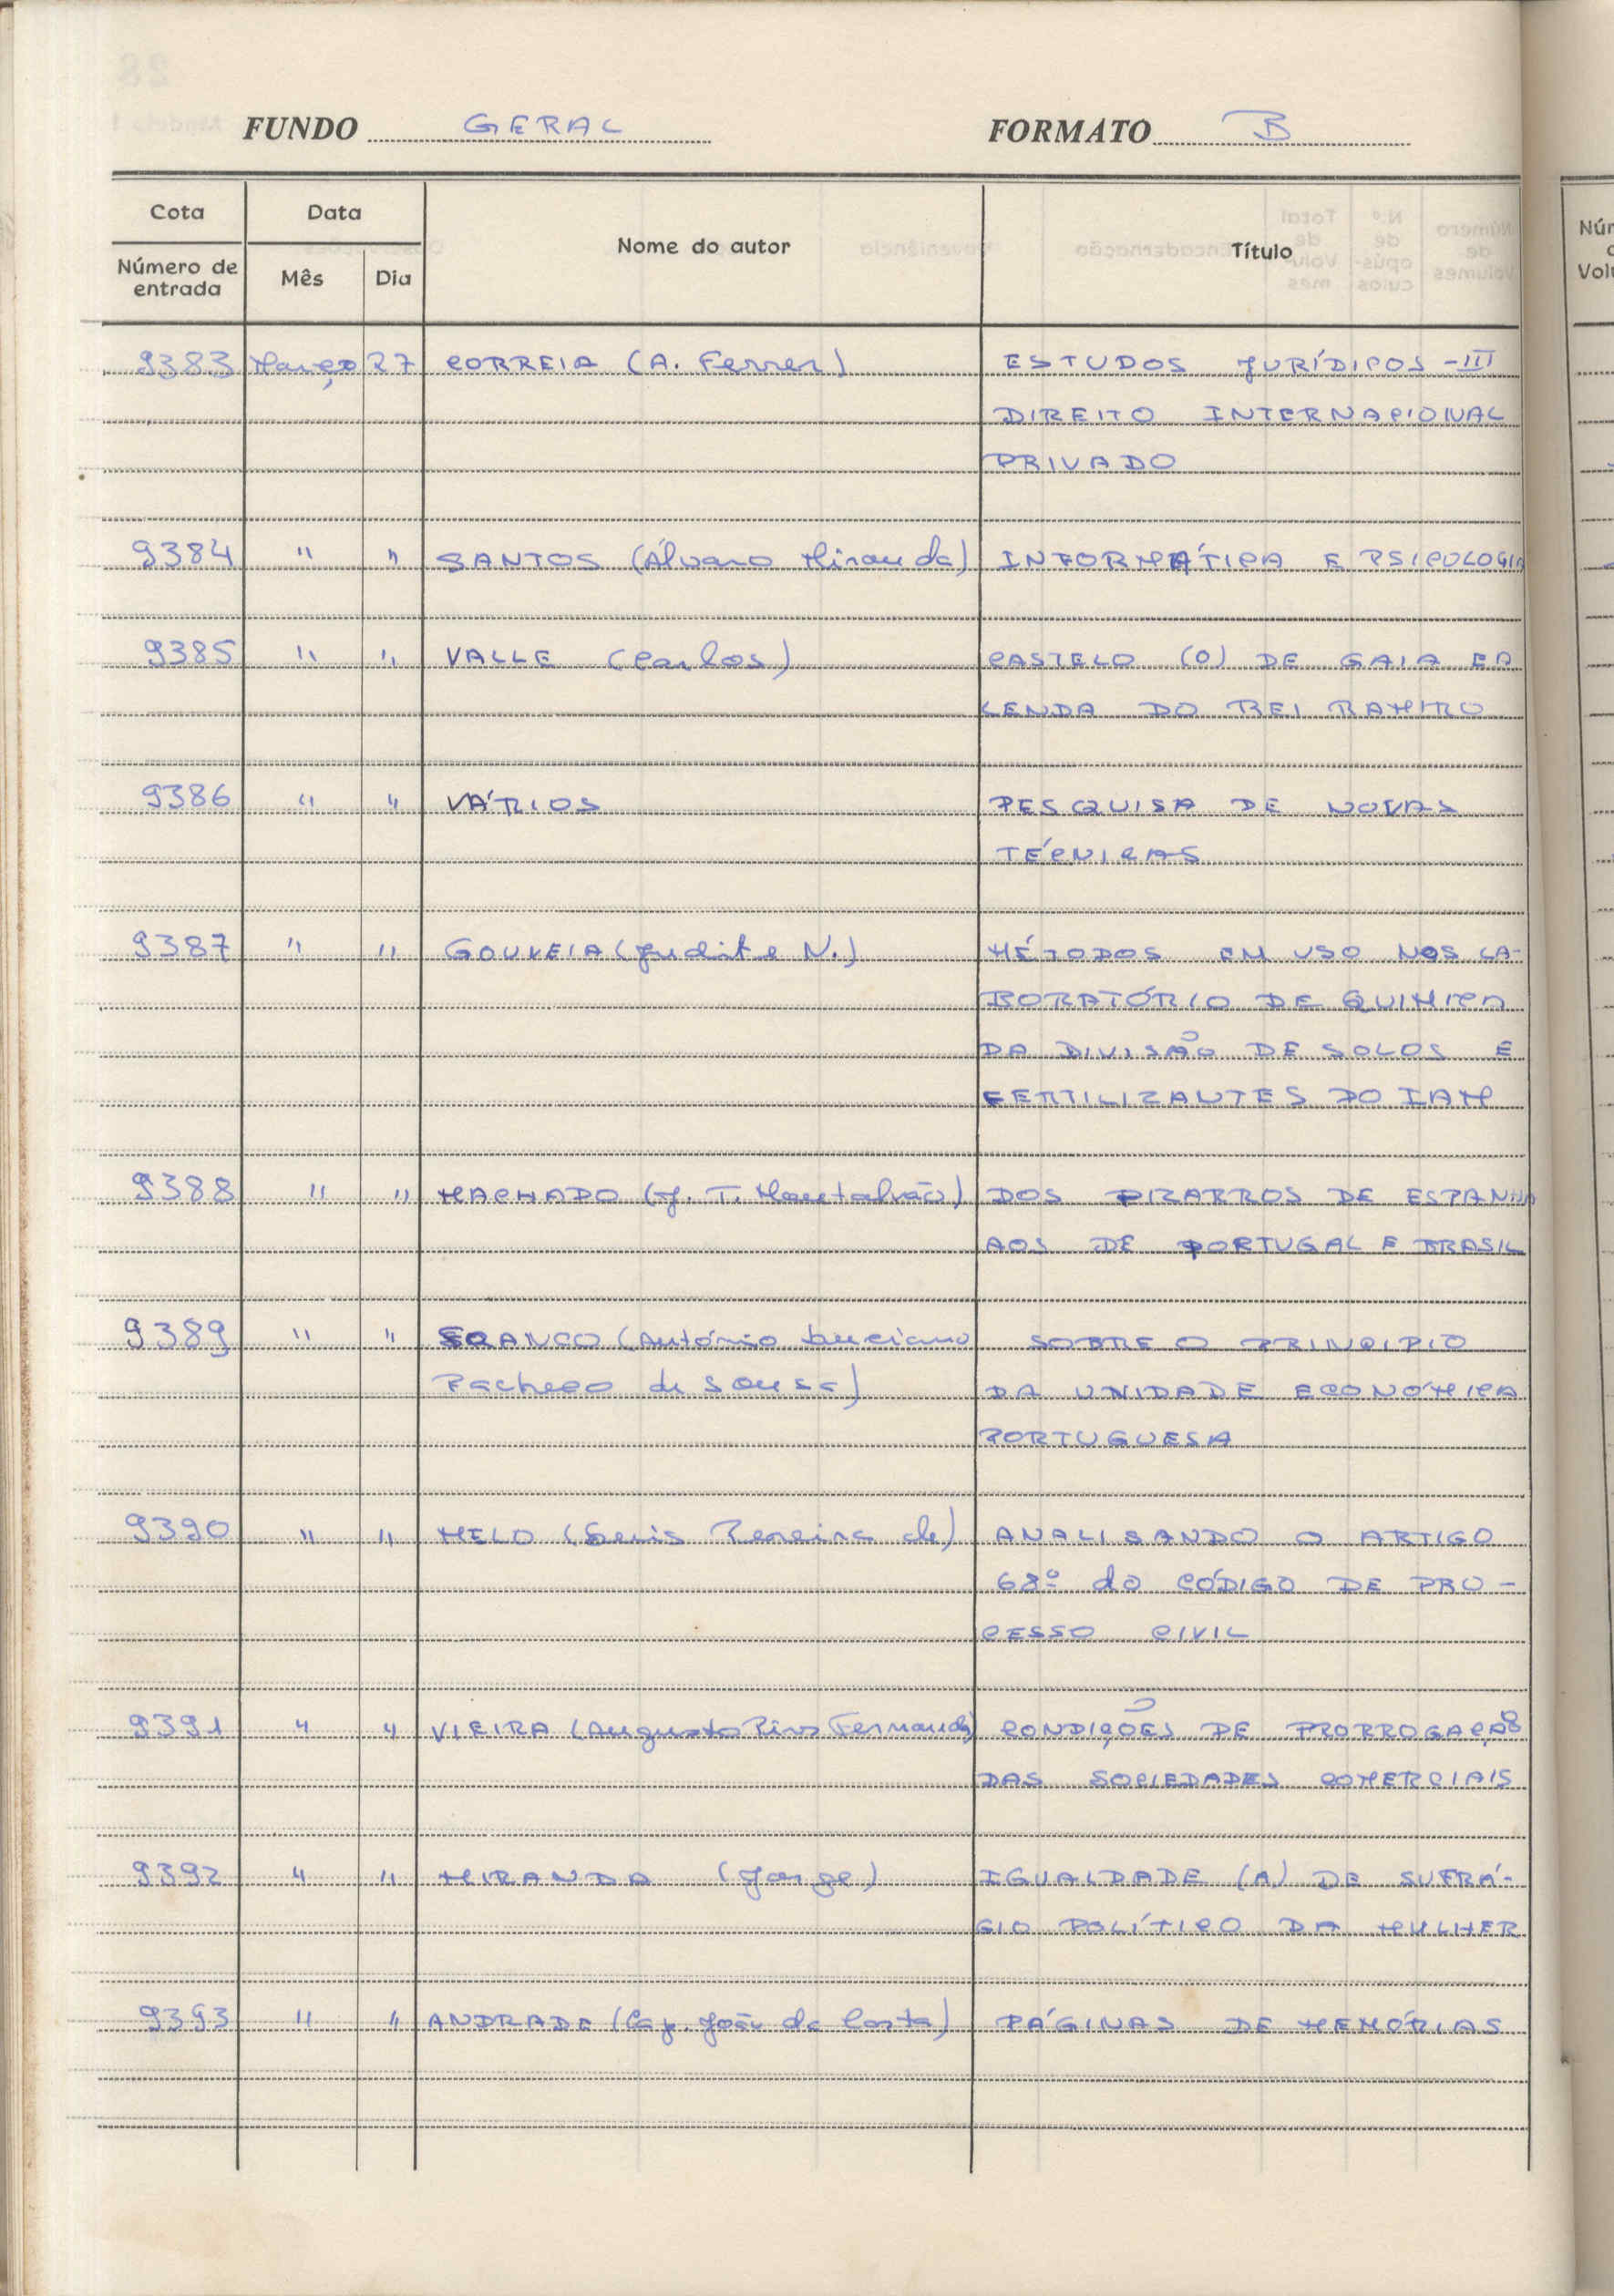 FUNDO GERAL FORMATO B
Cota Data Nome do autor Título
Número de entrada Mês Dia
9383 Março 27 CORREIA (A. Ferrer) ESTUDOS JURÍDICOS - III
DIREITO INTERNACIONAL
PRIVADO
9384 " " SANTOS (Álvaro Miranda) INFORMÁTICA E PSICOLOGIA
9385 " " VALLE (Carlos) CASTELO (O) DE GAIA E A
LENDA DO REI RAMIRO
9386 " " VÁRIOS PESQUISA DE NOVAS
TÉCNICAS
9387 " " GOUVEIA (Judite N.) MÉTODOS EM USO NOS LA-
BORATÓRIO DE QUIMICA
DA DIVISÃO DE SOLOS E
FERTILIZANTES DO IAM
9388 " " MACHADO (J. T. Montalvão) DOS PIZARROS DE ESPANHA
AOS DE PORTUGAL E BRASIL
9389 " " FRANCO (António Luciano SOBRE O PRINCIPIO
Pacheco de Sousa) DA UNIDADE ECONÓMICA
PORTUGUESA
9390 " " MELO (Luis Pereira de) ANALISANDO O ARTIGO
68º do CÓDIGO DE PRO-
CESSO CIVIL
9391 " " VIEIRA (Augusto Pires Fernandes) CONDIÇÕES DE PRORROGAÇÃO
DAS SOCIEDADES COMERCIAIS
9392 " " MIRANDA (Jorge) IGUALDADE (A) DE SUFRÁ-
GIO POLÍTICO DA MULHER
9393 " " ANDRADE (Cap. João da Costa) PÁGINAS DE MEMÓRIAS